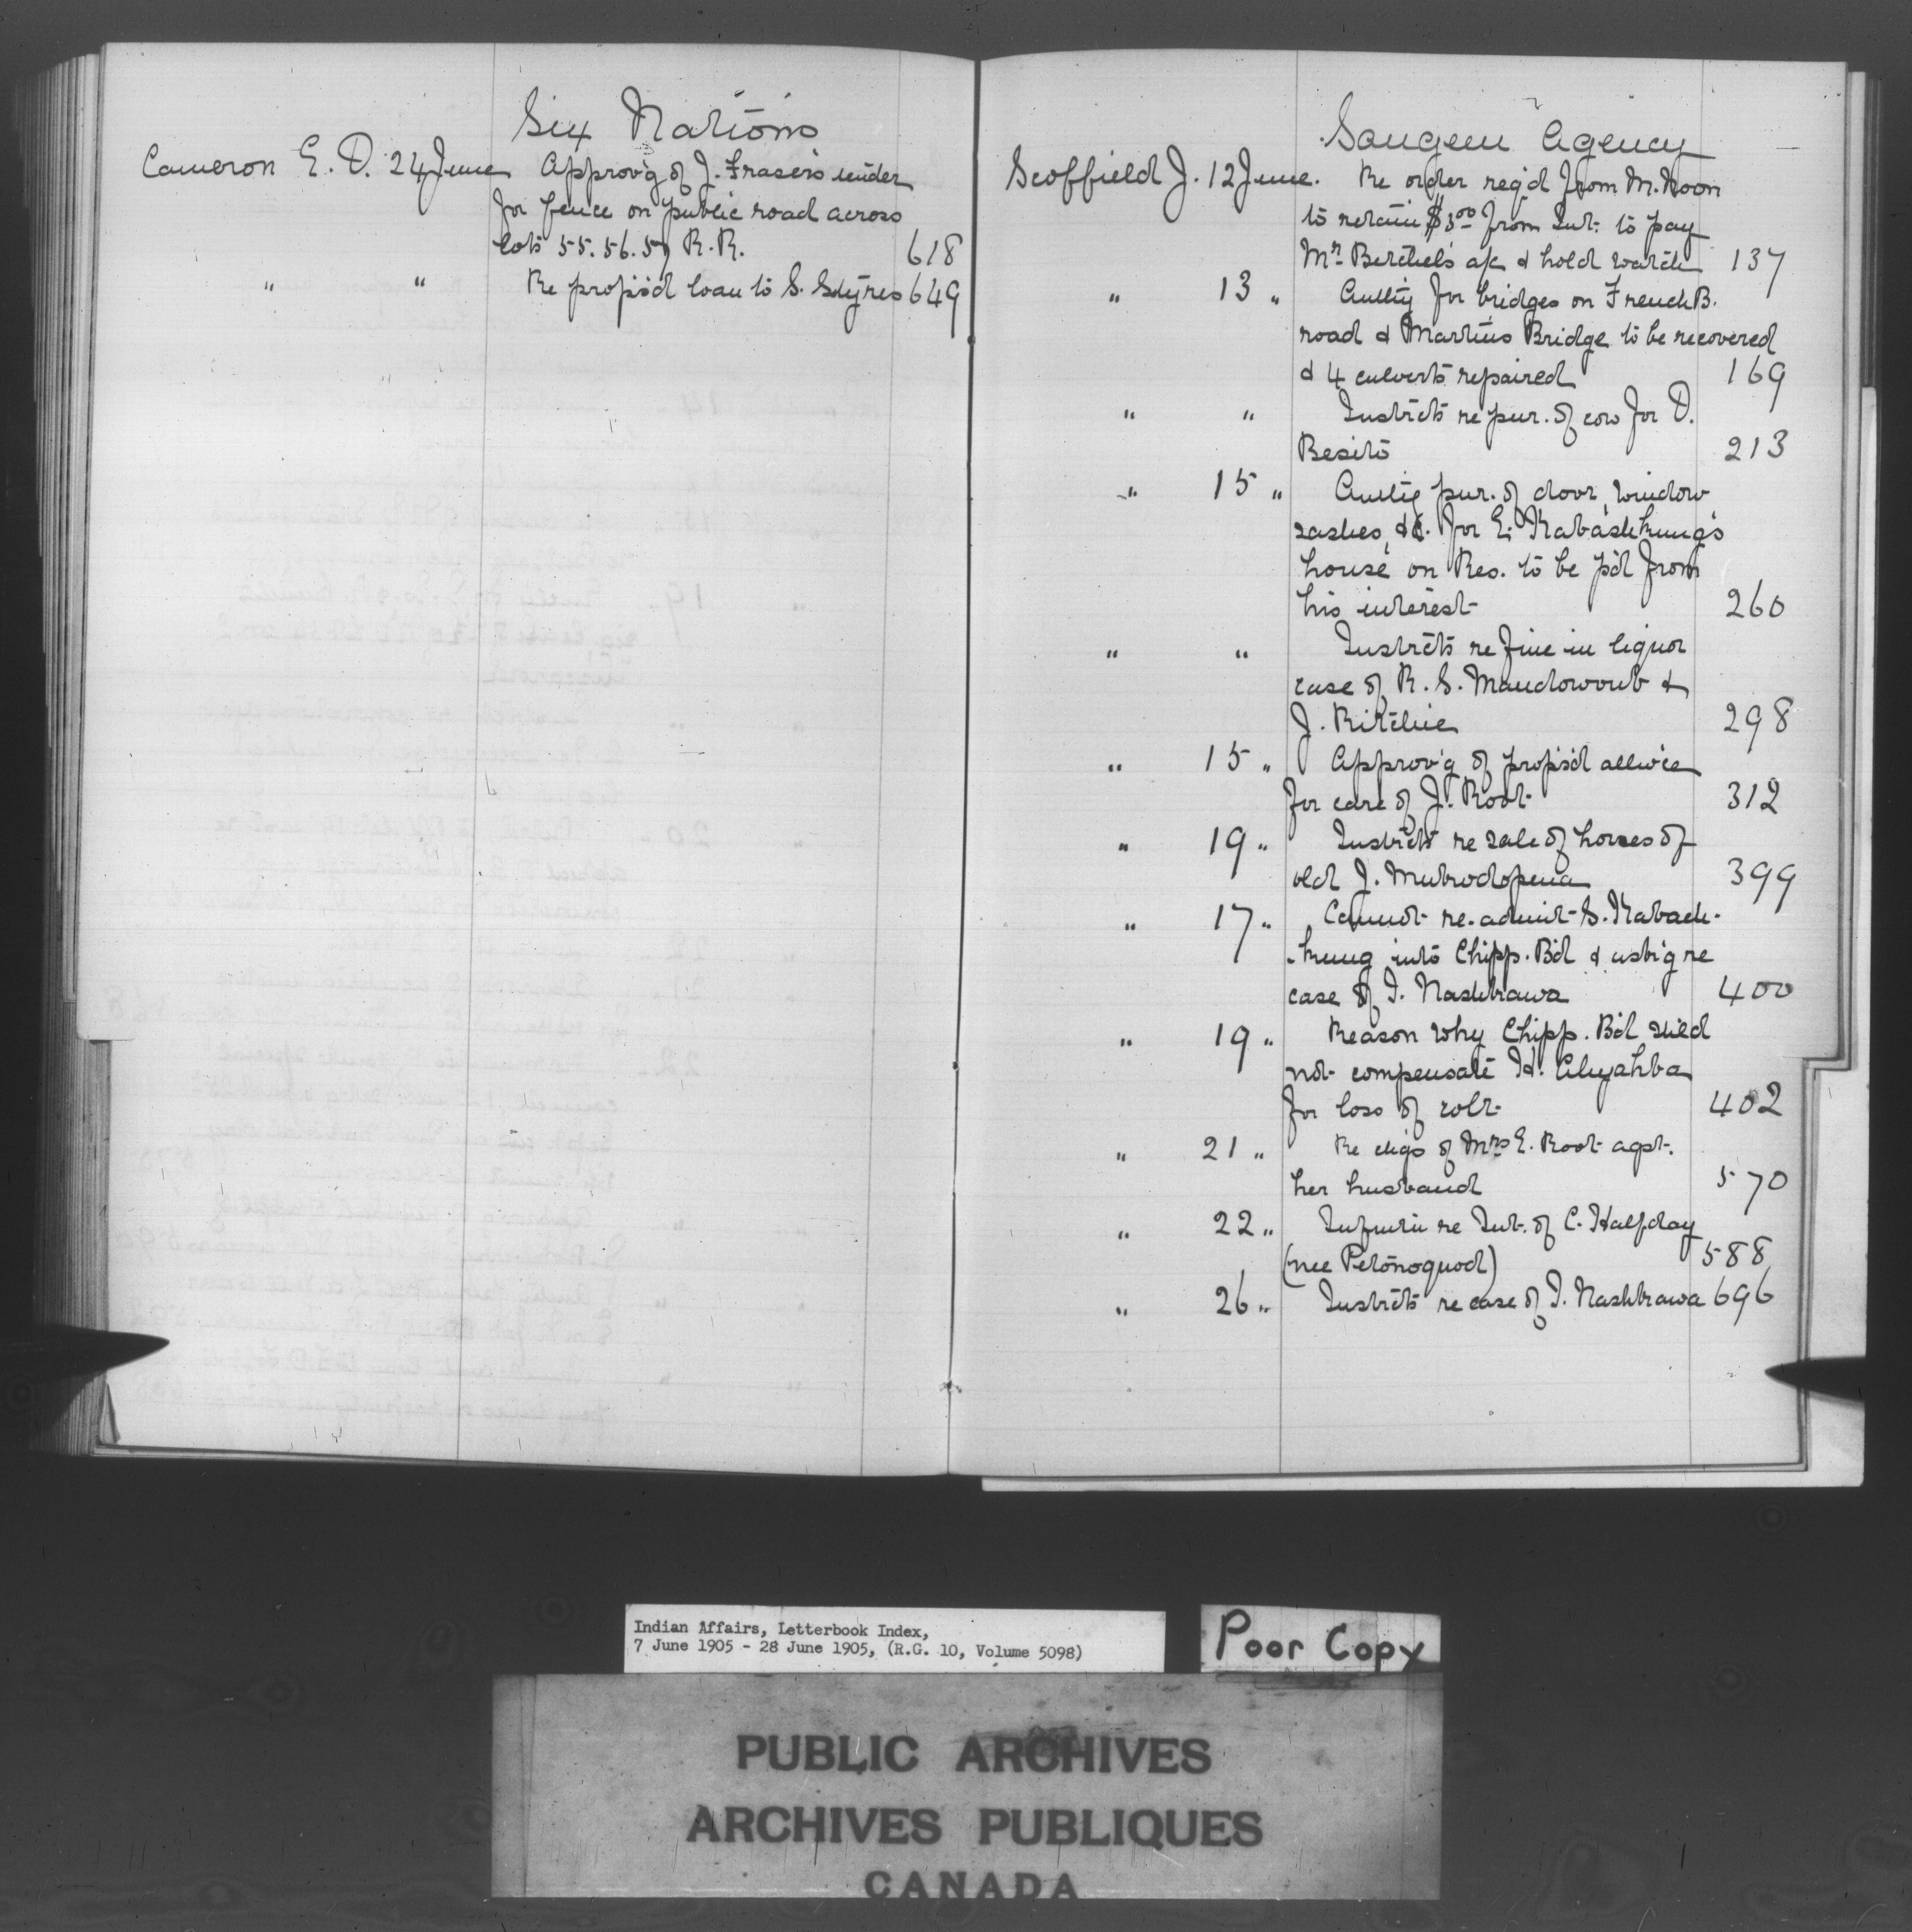 Six Nations
Cameron E. D. 24 June Approv'g of J. Fraser's tender
for fence on public road across
lots 55. 56. 57 R. R. 618
" " Re propos'd loan to S. Styres 649
Saugeen Agency
Scoffield J. 12 June. Re order req'd from M. Noon
to retain $3.00 from Int. to pay
Mr. Berchel's a/c & hold watch 137
" 13 " Auth'y for bridges on French B.
road & Martin's Bridge to be recovered
& 4 culverts repaired 169
" " Instr'cts re pur. of cow for D.
Besito 213
" 15 " Auth'y pur. of door, window
sashes, &c. for E. Kabashkung's
house on Res. to be p'd from
his interest 260
" " Instr'cts re fine in liquor
case of R. S. Mandowoub &
J. Ritchie 298
" 15 " Approv'g of propos'd allw'ce
for care of J. Root 312
" 19 " Instr'cts re sale of horses of
old J. 399
" 17 " Cannot re-admit S. Kabach-
-kung into Chipp. B'd & ask'g re
case of I. Nashkawa 400
" 19 " Reason why Chipp. B'd sh'ld
not compensate H. Ahyahba
for loss of colt 402
" 21 " Re ch'gs of Mrs E. Root agst.
her husband 570
" 22 " Inform'n re Int. of C. Halfday
(nee Petonoquod) 588
" 26 " Instr'cts re case of I. Nashkawa 696
Indian Affairs, Letterbook Index,
7 June 1905 - 28 June 1905, (R.G. 10, Volume 5098)
Poor Copy
PUBLIC ARCHIVES
ARCHIVES PUBLIQUES
CANADA